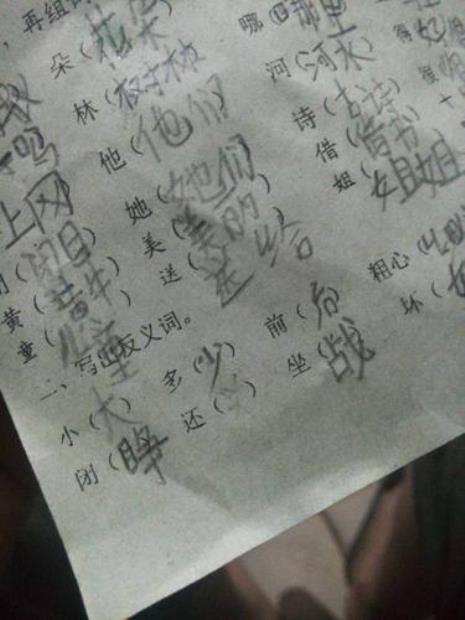 ，再组
朵（花朵） 哪（那里
林（树林） 河（河水） 得（好
吗 他（他们） 诗（古诗） 很（很
上网 她（她们） 借（借书） 十
（闭目） 美（美丽） 姐（姐姐
黄（黄牛） 送（送给
童（儿童）
二、写出反义词。 粗心（
小（大） 多（少） 前（后 坏（
闭（睁 还（ ） 坐（战